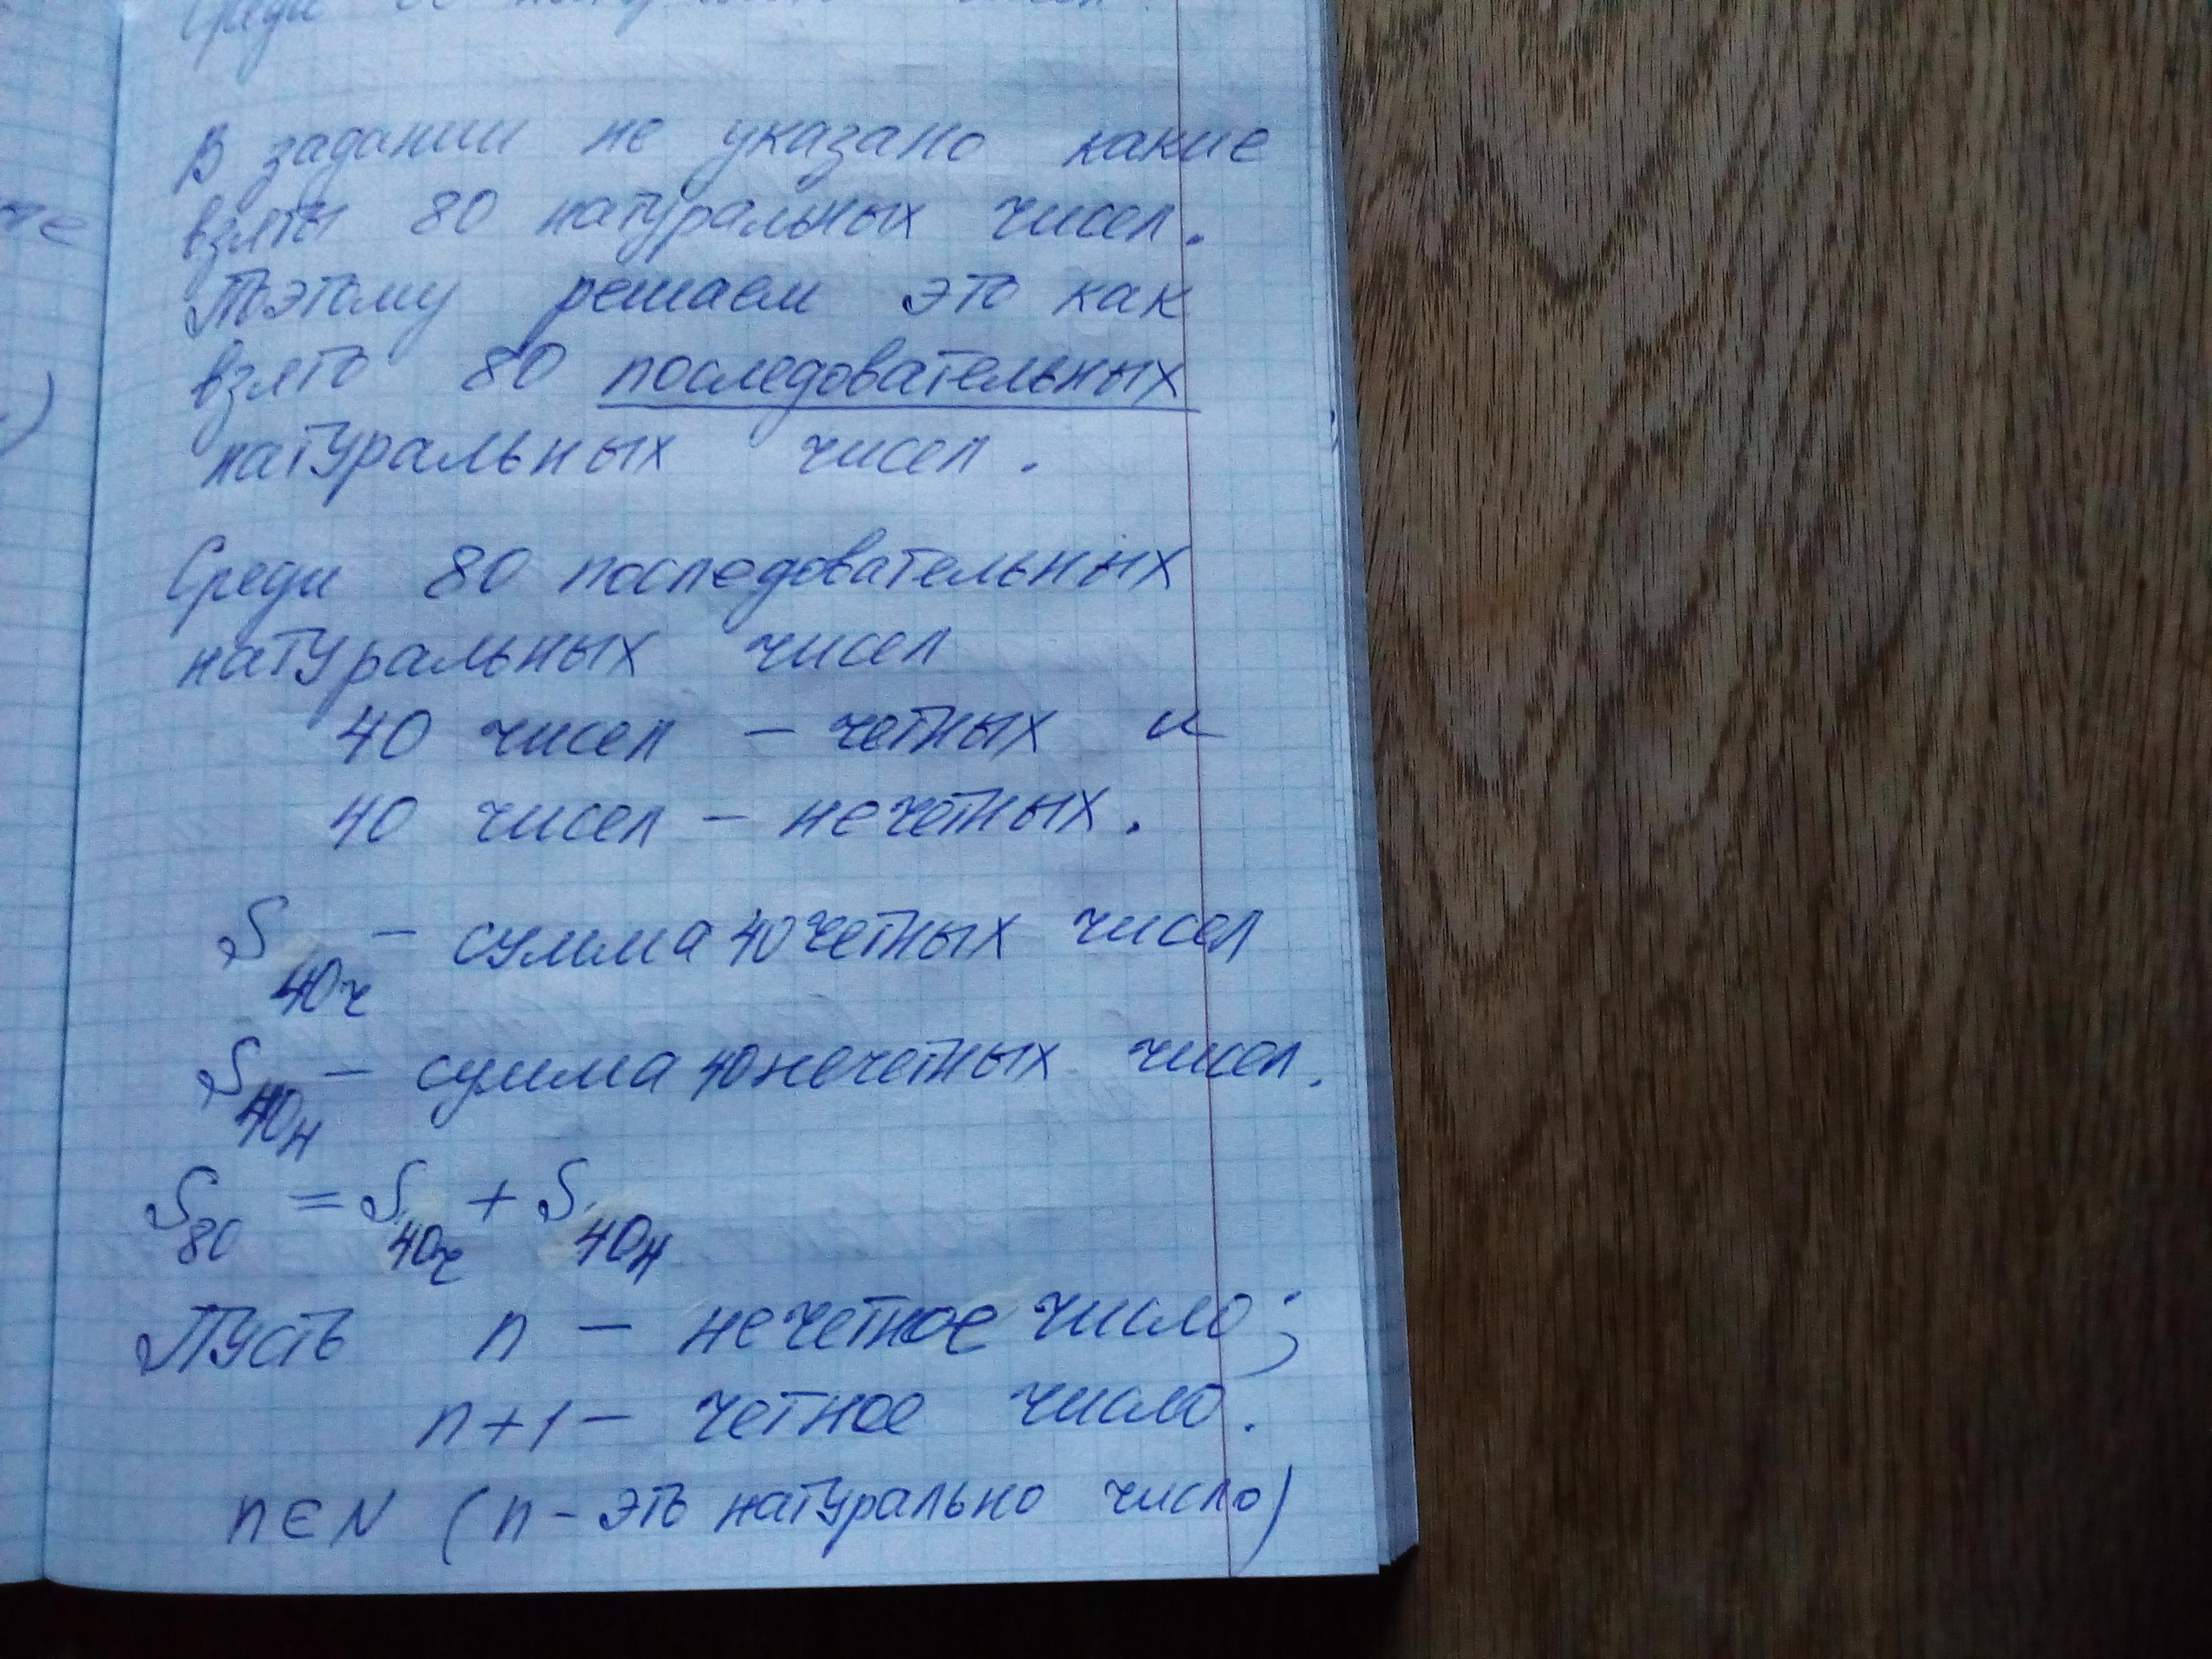 Среди 80
В задании не указано какие
взяты 80 натуральных чисел.
Поэтому решаем это как
взято 80 последовательных
натуральных чисел.
Среди 80 последовательных
натуральных чисел
40 чисел – четных и
40 чисел – нечетных.
S40ч – сумма 40 четных чисел
S40н – сумма 40 нечетных чисел.
S80 = S40ч + S40н
Пусть n – нечетное число;
n+1 – четное число.
n∈N (n – это натурально число)